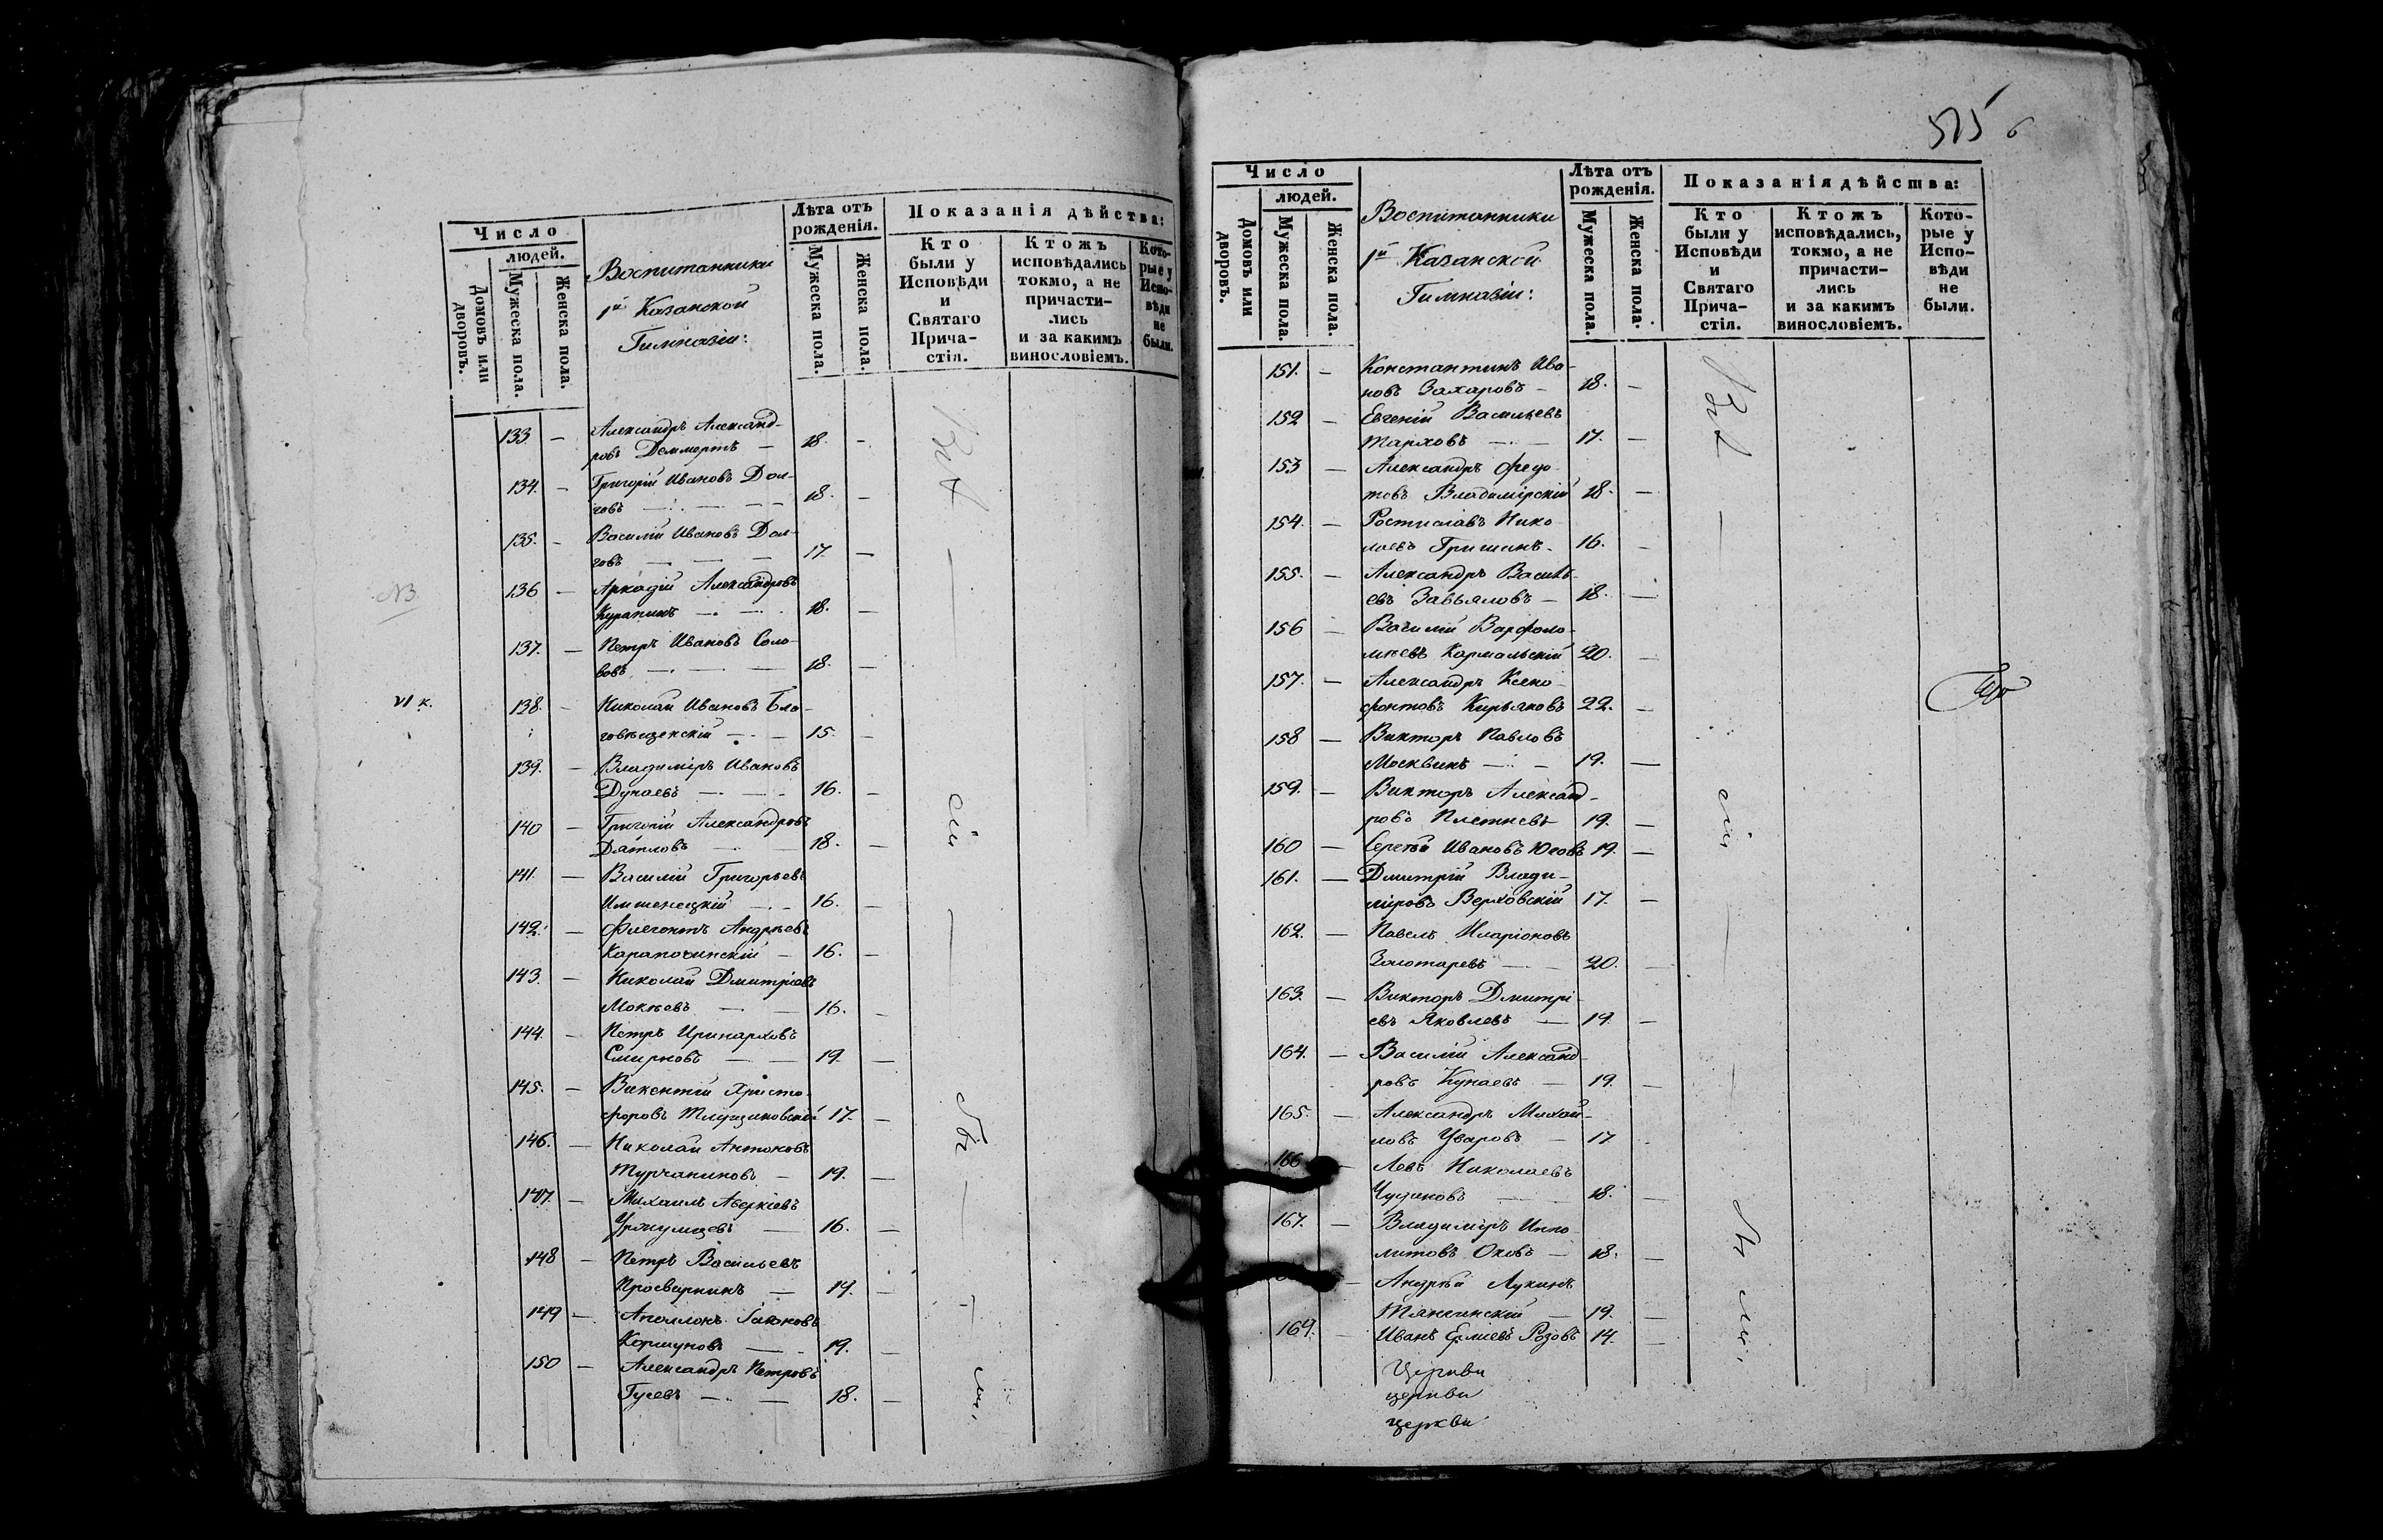 Число
людей.
Домовъ или дворовъ.
Мужеска пола.
Женска пола.
Воспитанники
1й Казанской
Гимназіи:
Лѣта отъ рожденія.
Мужеска пола.
Женска пола.
Показанія дѣйства:
Кто были у Исповѣди и Святаго Прича-стія.
Ктожъ исповѣдались токмо, а не причасти-лись и за какимъ винословіемъ.
Кото-рые у Испо-вѣди не были.
133 — Александръ Александ-
ровъ Деммортъ — 18. —
134. — Григорій Ивановъ Дол-
говъ — 18. —
135. — Василій Ивановъ Дол-
говъ — 17. —
NB 136 — Аркадій Александровъ
Купанинъ — 18. —
137. — Петръ Ивановъ Соло-
вовъ — 18. —
VI к. 138. — Николай Ивановъ Бла-
говѣщенскій — 15. —
139. — Владиміръ Ивановъ
Дунаевъ — 16. —
140 — Григорій Александровъ
Дятловъ — 18. —
141. — Василій Григорьевъ
Имшенецкій — 16. —
142. — Флегонтъ Андреевъ
Карапочинскій — 16. —
143. — Николай Дмитріевъ
Мокѣевъ — 16. —
144. — Петръ Иринарховъ
Смирновъ — 19. —
145. — Викентій Христо-
форовъ 17. —
146. — Николай Антоновъ
Турчаниновъ — 19. —
147. — Михаилъ Аверкіевъ
Уржумцевъ — 16. —
148 — Петръ Васильевъ
Просвирнинъ — 19. —
149 — Аполлонъ
Коршуновъ — 19. —
150 — Александръ Петровъ
Гусевъ — 18. —
Всѣ
сіи
бы
ли.
515
Число
людей.
Домовъ или дворовъ.
Мужеска пола.
Женска пола.
Воспитанники
1й Казанской
Гимназіи:
Лѣта отъ рожденія.
Мужеска пола.
Женска пола.
Показанія дѣйства:
Кто были у Исповѣди и Святаго Прича-стія.
Ктожъ исповѣдались, токмо, а не причасти-лись и за какимъ винословіемъ.
Кото-рые у Испо-вѣди не были.
151. — Константинъ Ива-
новъ Захаровъ — 18. —
152 — Евгеній Васильевъ
Тарховъ — 17. —
153 — Александръ Ѳедо-
товъ Владимірскій 18. —
154. — Ростиславъ Нико-
лаевъ Гришинъ. 16. —
155. — Александръ Василь-
евъ Завьяловъ — 18. —
156 — Василій Варфоло-
мѣевъ Кармальскій 20. —
157. — Александръ Ксено-
фонтовъ Кирьяковъ 22. —
158 — Викторъ Павловъ
Москвинъ — 19. —
159. — Викторъ Александ-
ровъ Плетневъ 19. —
160 — Сергѣй Ивановъ Юсовъ 19. —
161. — Дмитрій Влади-
міровъ Верховскій 17. —
162. — Павелъ Иларіоновъ
Золотаревъ — 20. —
163. — Викторъ Дмитрі-
евъ Яковлевъ — 19. —
164. — Василій Александ-
ровъ Кунаевъ — 19. —
165. — Александръ Михай-
ловъ Уваровъ — 17
166 — Левъ Николаевъ
Чудиновъ — 18. —
167. — Владиміръ Иппо-
литовъ Оковъ — 18. —
— Андрѣй Лукинъ
19. —
169. — Иванъ Розовъ 14. —
Церкви
церкви
церкви
Всѣ
сіи
бы
ли.